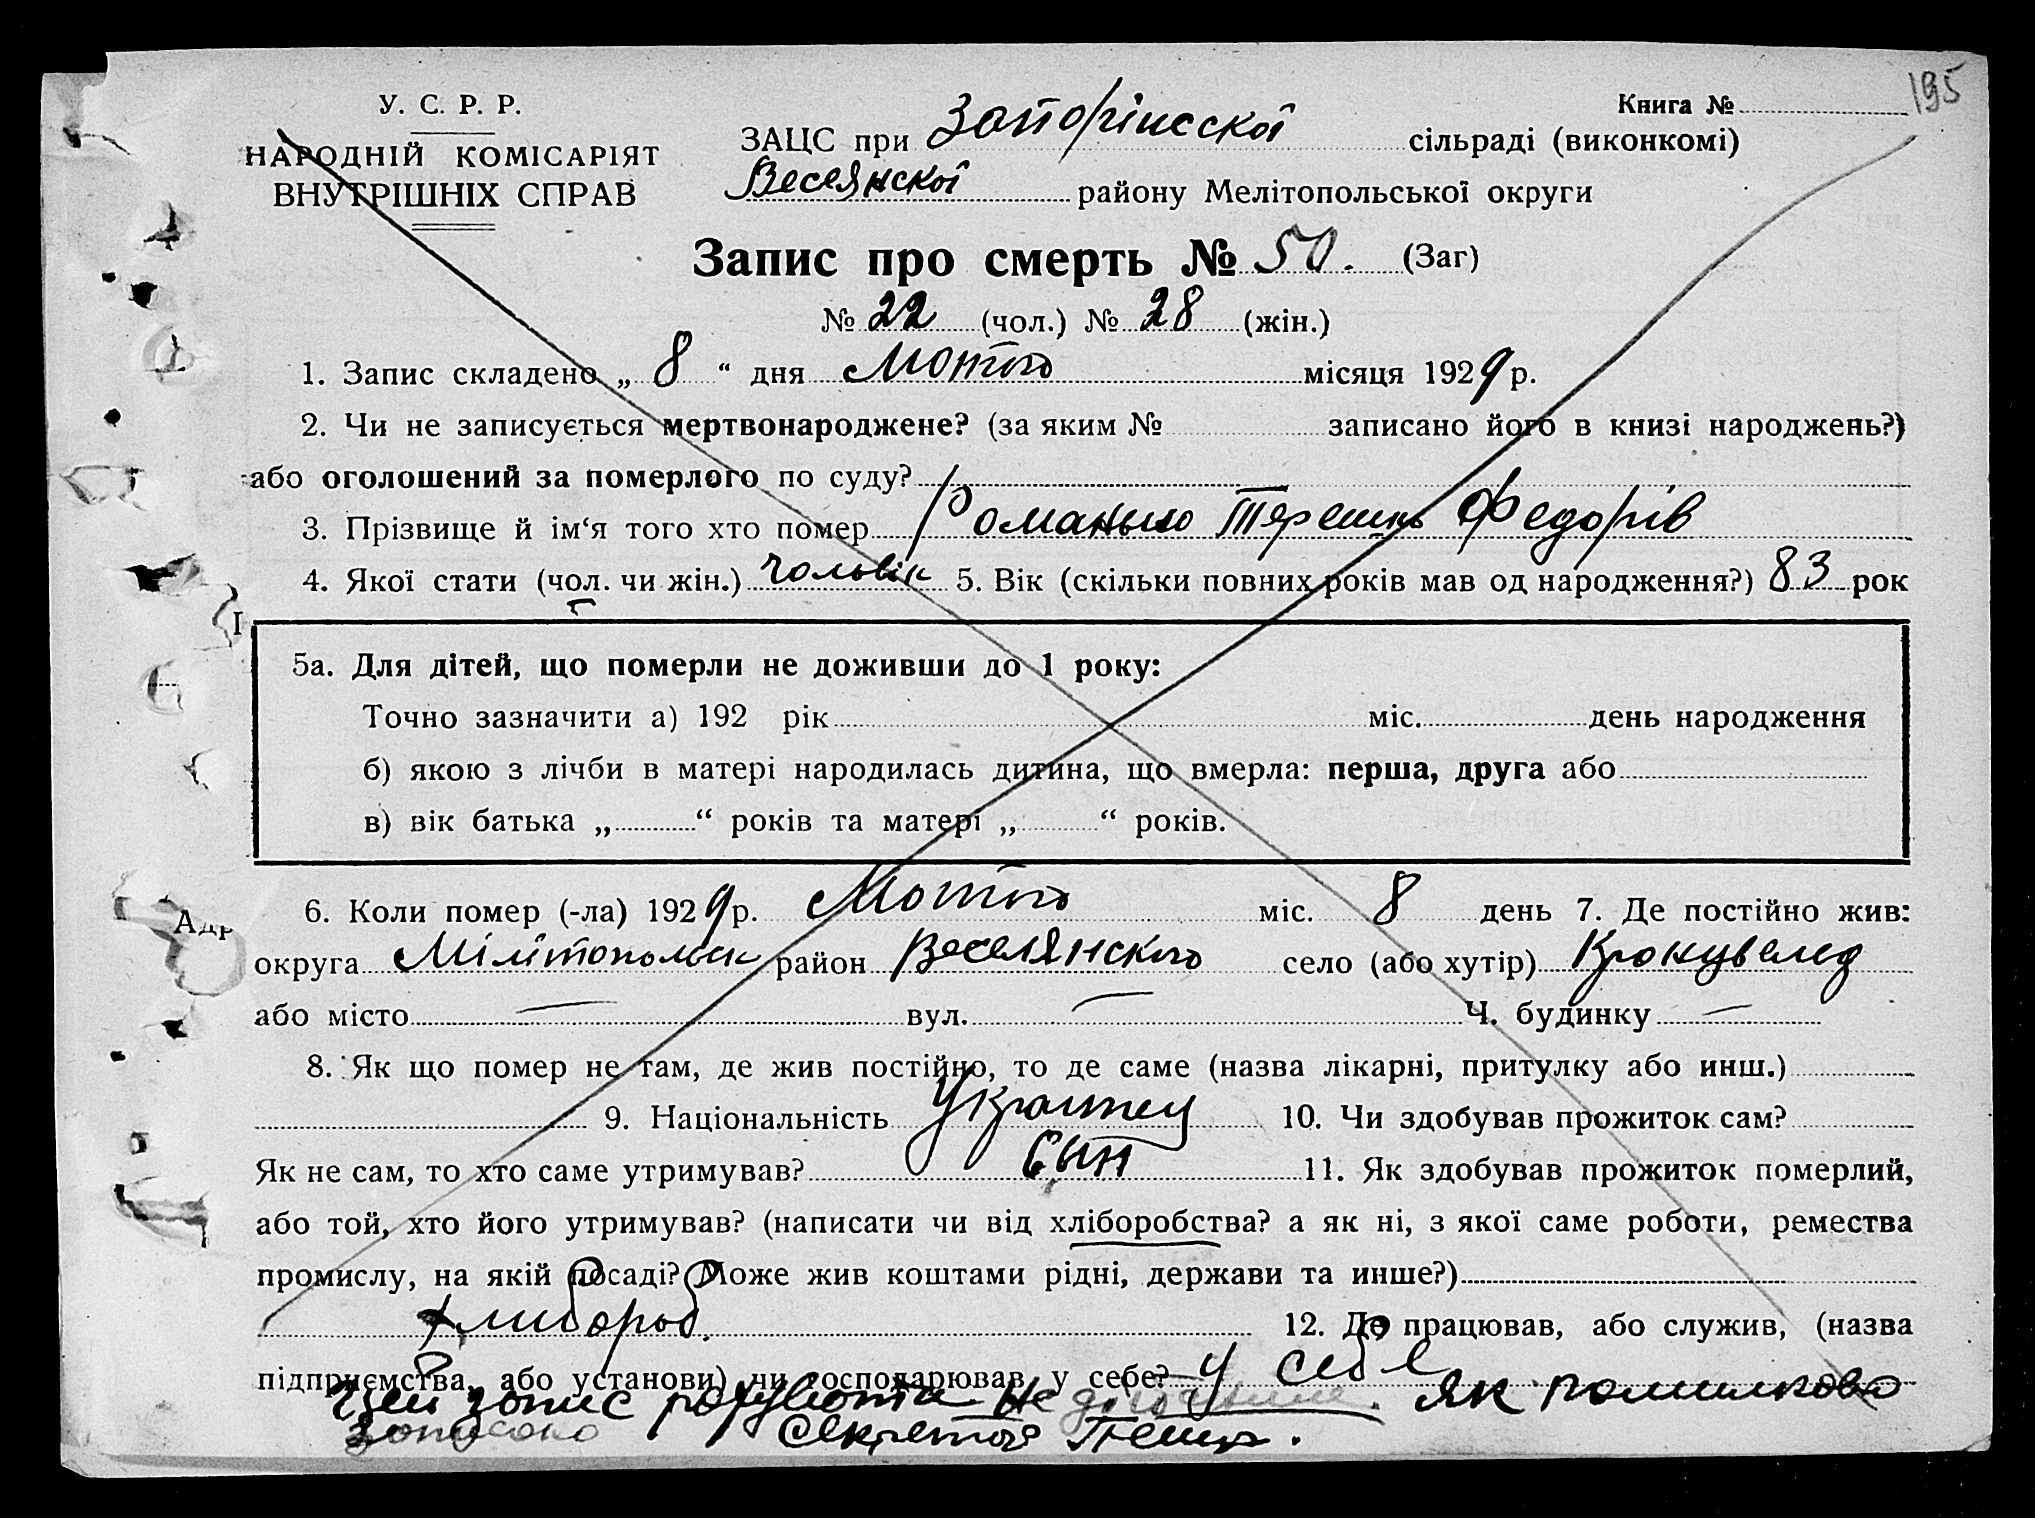 195
У. С. Р. Р.
Книга №
НАРОДНІЙ КОМІСАРІЯТ
ВНУТРІШНІХ СПРАВ
ЗАЦС при сільраді (виконкомі)
Веселянской району Мелітопольської округи
Запис про смерть № 50. (Заг)
№ 22 (чол.) № 28 (жін.)
1. Запис складено „ 8 “ дня Мотого місяця 1929 р.
2. Чи не записується мертвонароджене? (за яким № записано його в книзі народжень?)
або оголошений за померлого по суду?
3. Прізвище й ім‘я того хто помер Романько Федорів
4. Якої стати (чол. чи жін.) чоловік 5. Вік (скільки повних років мав од народження?) 83 рок
I
5а. Для дітей, що померли не доживши до 1 року:
Точно зазначити а) 192 рік міс. день народження
б) якою з лічби в матері народилась дитина, що вмерла: перша, друга або
в) вік батька „ “ років та матері „ “ років.
6. Коли помер (-ла) 1929 р. Мотого міс. 8 день 7. Де постійно жив:
Адр
округа район Веселянского село (або хутір)
або місто — вул. — Ч. будинку —
8. Як що помер не там, де жив постійно, то де саме (назва лікарні, притулку або инш.)
9. Національність Украинец 10. Чи здобував прожиток сам?
Як не сам, то хто саме утримував? Сын 11. Як здобував прожиток померлий,
або той, хто його утримував? (написати чи від хліборобства? а як ні, з якої саме роботи, ремества
промислу, на якій посаді? Може жив коштами рідні, держави та инше?)
хлибороб. 12. Де працював, або служив, (назва
підприємства, або установи) чи господарював у себе? у себе
Цей запис як помилково
записано Секретар